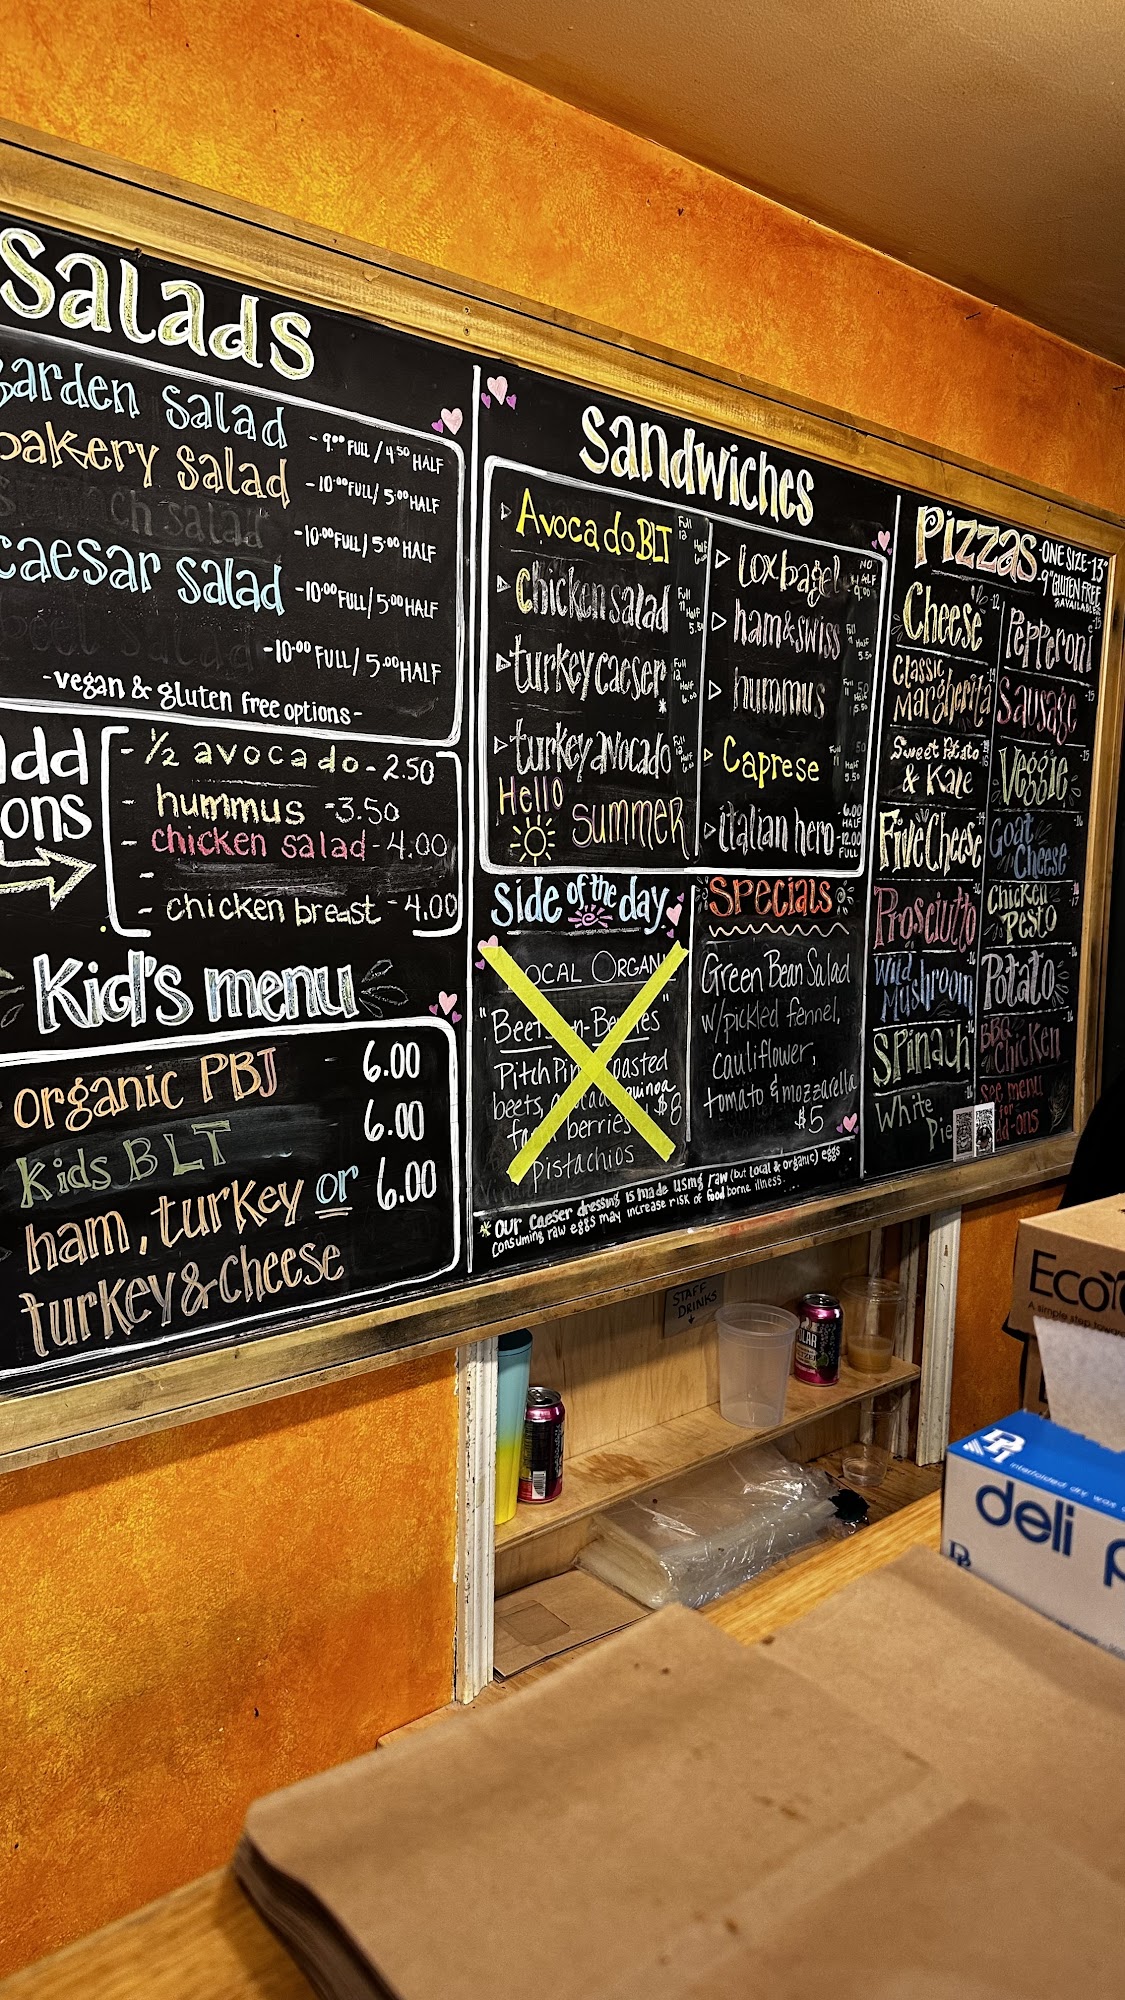 Salads
garden salad - 9.00 FULL / 4.50 HALF
bakery salad - 10.00 FULL / 5.00 HALF
ch salad - 10.00 FULL / 5.00 HALF
caesar salad - 10.00 FULL / 5.00 HALF
salad - 10.00 FULL / 5.00 HALF
- vegan & gluten free options -
add
ons
- 1/2 avocado - 2.50
- hummus - 3.50
- chicken salad - 4.00
-
- chicken breast - 4.00
Kid's menu
organic PBJ - 6.00
Kids BLT 6.00
ham, turkey or 6.00
turkey & cheese
Sandwiches
Avocado BLT Full 12 Half 6.00
chicken salad Full 11 Half 5.50
turkey caeser Full 12 Half 6.00
*
turkey avocado Full 12 Half 6.00
Hello
summer
lox bagel NO HALF 9.00
ham & swiss Full 11 Half 5.50
hummus Full 11 Half 5.50
Caprese Full 11 Half 5.50
italian hero - 6.00 HALF 12.00 FULL
Side of the day
OCAL ORGANI
"Beet n-Berries"
Pitch Pin roasted
beets, quinoa
berries $8
pistachios
Specials
Green Bean Salad
w/pickled fennel,
cauliflower,
tomato & mozzarella
$5
* our caeser dressing is made using raw (but local & organic) eggs
consuming raw eggs may increase risk of food borne illness....
Pizzas - ONE SIZE - 13"
- 9" GLUTEN FREE
AVAILABLE
Cheese - 12
Classic
Margherita - 14
Sweet Potato
& Kale
Five Cheese - 14
Prosciutto - 16
Wild
Mushroom - 16
Spinach - 16
White
Pie
Pepperoni - 15
Sausage - 15
Veggie - 15
Goat
Cheese - 16
Chicken
Pesto
Potato - 16
BBQ
Chicken - 16
See menu
for
add-ons
STAFF
DRINKS
Eco
A simple step
interfolded dry wax
deli p